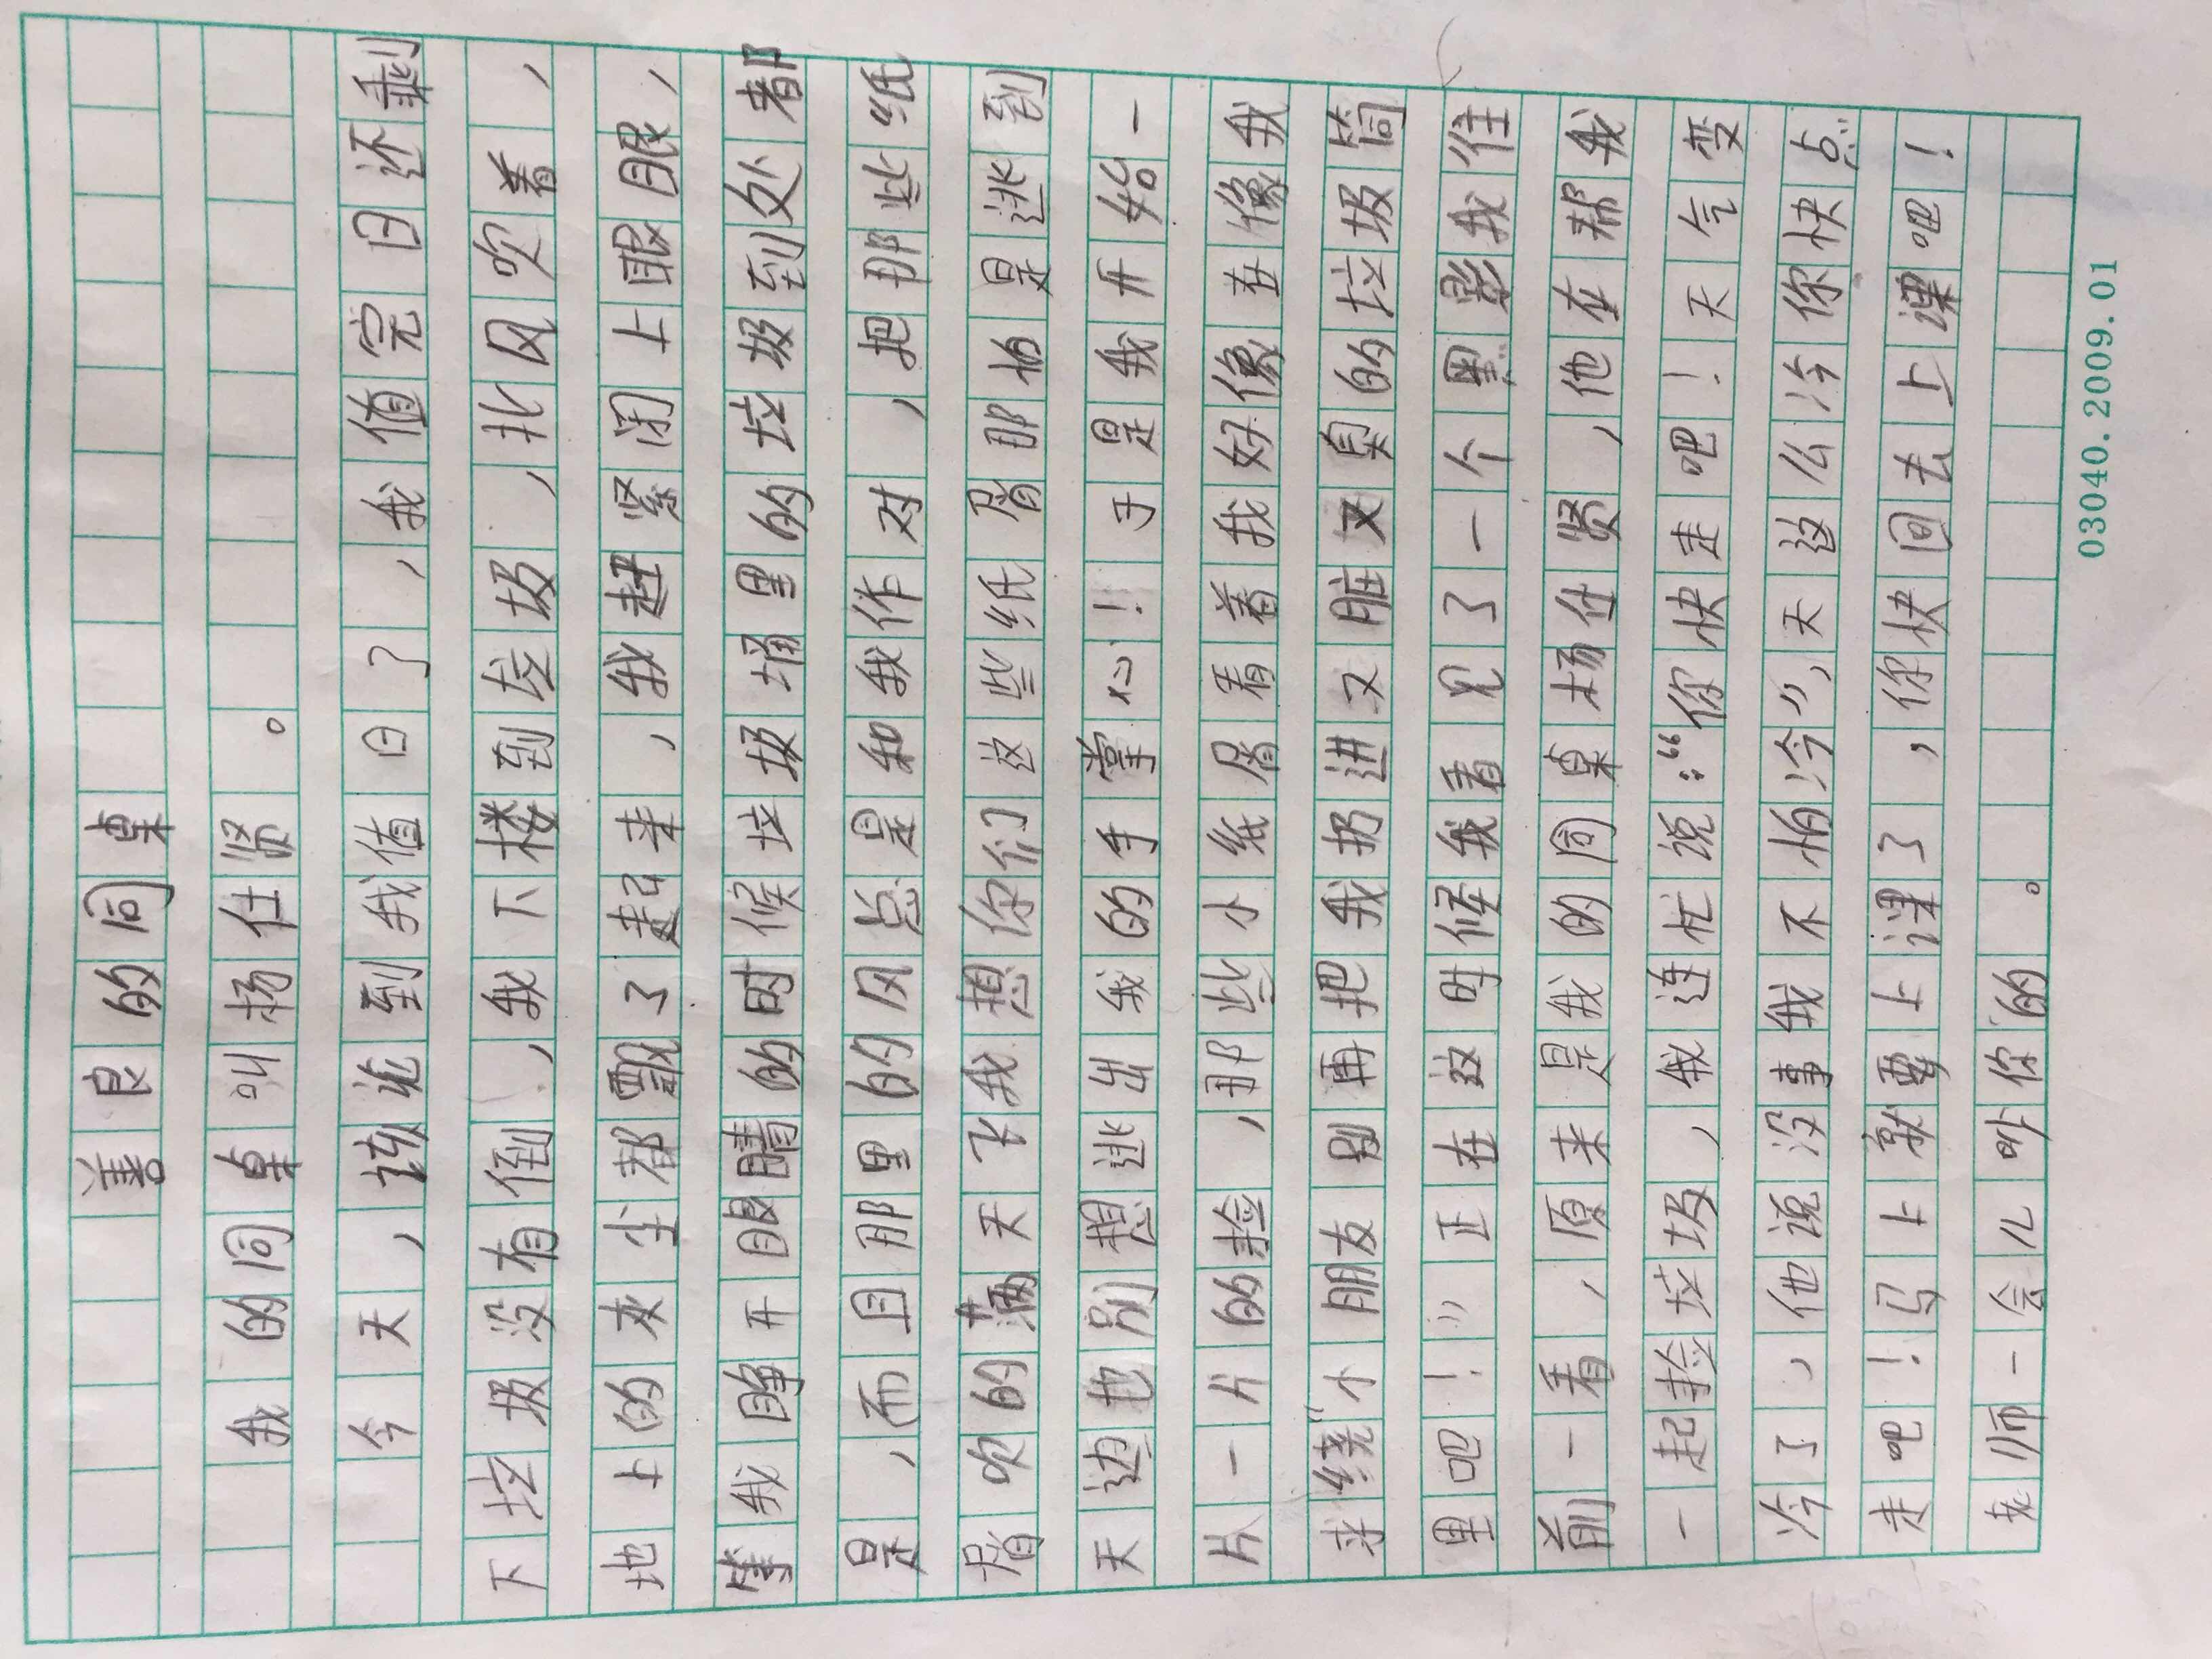 善良的同桌
我的同桌叫杨仕贤。
今天，该论到我值日了，我值完日还剩
下垃圾没有倒，我下楼到垃圾，北风吹着，
地上的灰尘都飘了起来，我赶紧闭上眼眼，
等我睁开眼睛的时候垃圾埇里的垃圾到处都
是，而且那里的风总是和我作对，把那些纸
屑吹的满天飞我想你们这些纸屑那怕是逃到
天边也别想逃出我的手掌心！于是我开始一
片一片的捡，那些小纸屑看着我好像在像我
求绕“小朋友别再把我扔进又脏又臭的垃圾筒
里吧！”正在这时候我看见了一个黑影我住
前一看，原来是我的同桌杨仕贤，他在帮我
一起捡垃圾，我连忙说：“你快走吧！天气变
冷了，他说没事我不怕冷”，天这么冷你快点
走吧！马上就要上课了，你快回去上课吧！
老师一会儿吵你的。
03040.2009.01